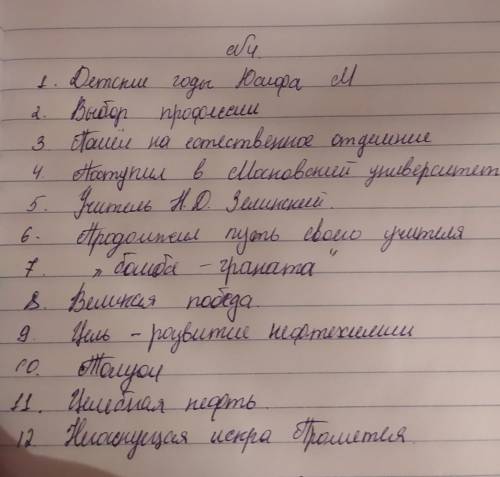 №4.
1. Детские годы Юсифа М
2. Выбор профессии
3. Пошёл на естественное отделение
4. Поступил в Московский университет
5. Учитель Н.Д. Зелинский.
6. Продолжил путь своего учителя
7. „бомба - граната“
8. Великая победа.
9. Цель - развитие нефтехимии
10. Толуол
11. Целебная нефть.
12 Негаснущая искра Прометея.